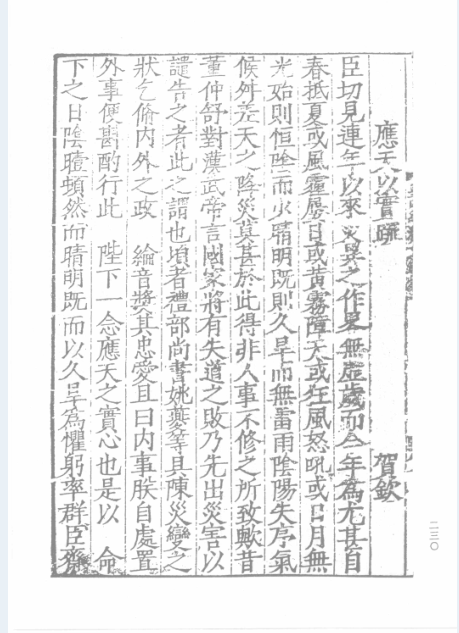 應天以實疏 賀欽
臣切見連年以來災異之作畧無虛歲而今年為尤甚自
春抵夏或風霾屢日或黃霧障天或狂風怒吼或日月無
光始則恒陰而少晴明既則久旱而無雷雨陰陽失序氣
候舛差天之降災莫甚於此得非人事不修之所致歟昔
董仲舒對漢武帝言國家將有失道之敗乃先出災害以
譴告之者此之謂也頃者禮部尚書姚夔等具陳災變之
狀乞脩內外之政 綸音獎其忠愛且曰內事朕自處置
外事便斟酌行此 陛下一念應天之實心也是以 命
下之日陰曀頓然而晴明既而以久旱為懼躬率群臣齋
二三〇